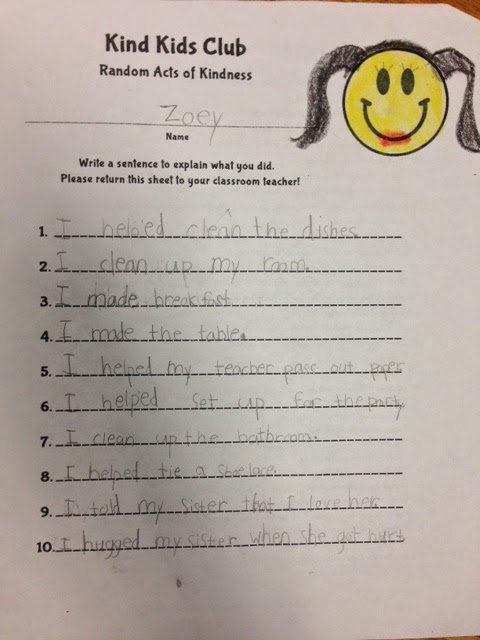 Kind Kids Club
Random Acts of Kindness
Zoey
Name
Write a sentence to explain what you did.
Please return this sheet to your classroom teacher!
1. I helped clean the dishes
2. I clean up my room.
3. I made breakfast
4. I made the table.
5. I helped my teacher pass out paper
6. I helped set up for the party
7. I clean up the bathroom.
8. I helped tie a shoe lace.
9. I told my sister that I love her.
10. I hugged my sister when she got hurt